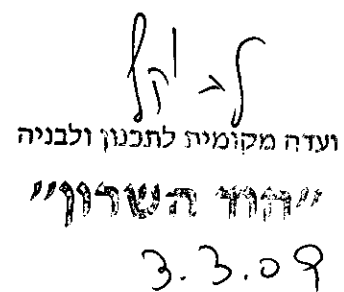 ועדה מקומית לתכנון ולבניה
"הוד השרון"
3.3.09